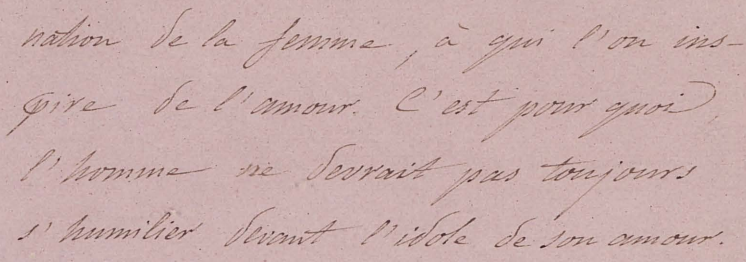 nation de la femme, à qui l'on ins-
pire de l'amour. C'est pour quoi
l'homme ne devrait pas toujours
s'humilier devant l'idole de son amour.